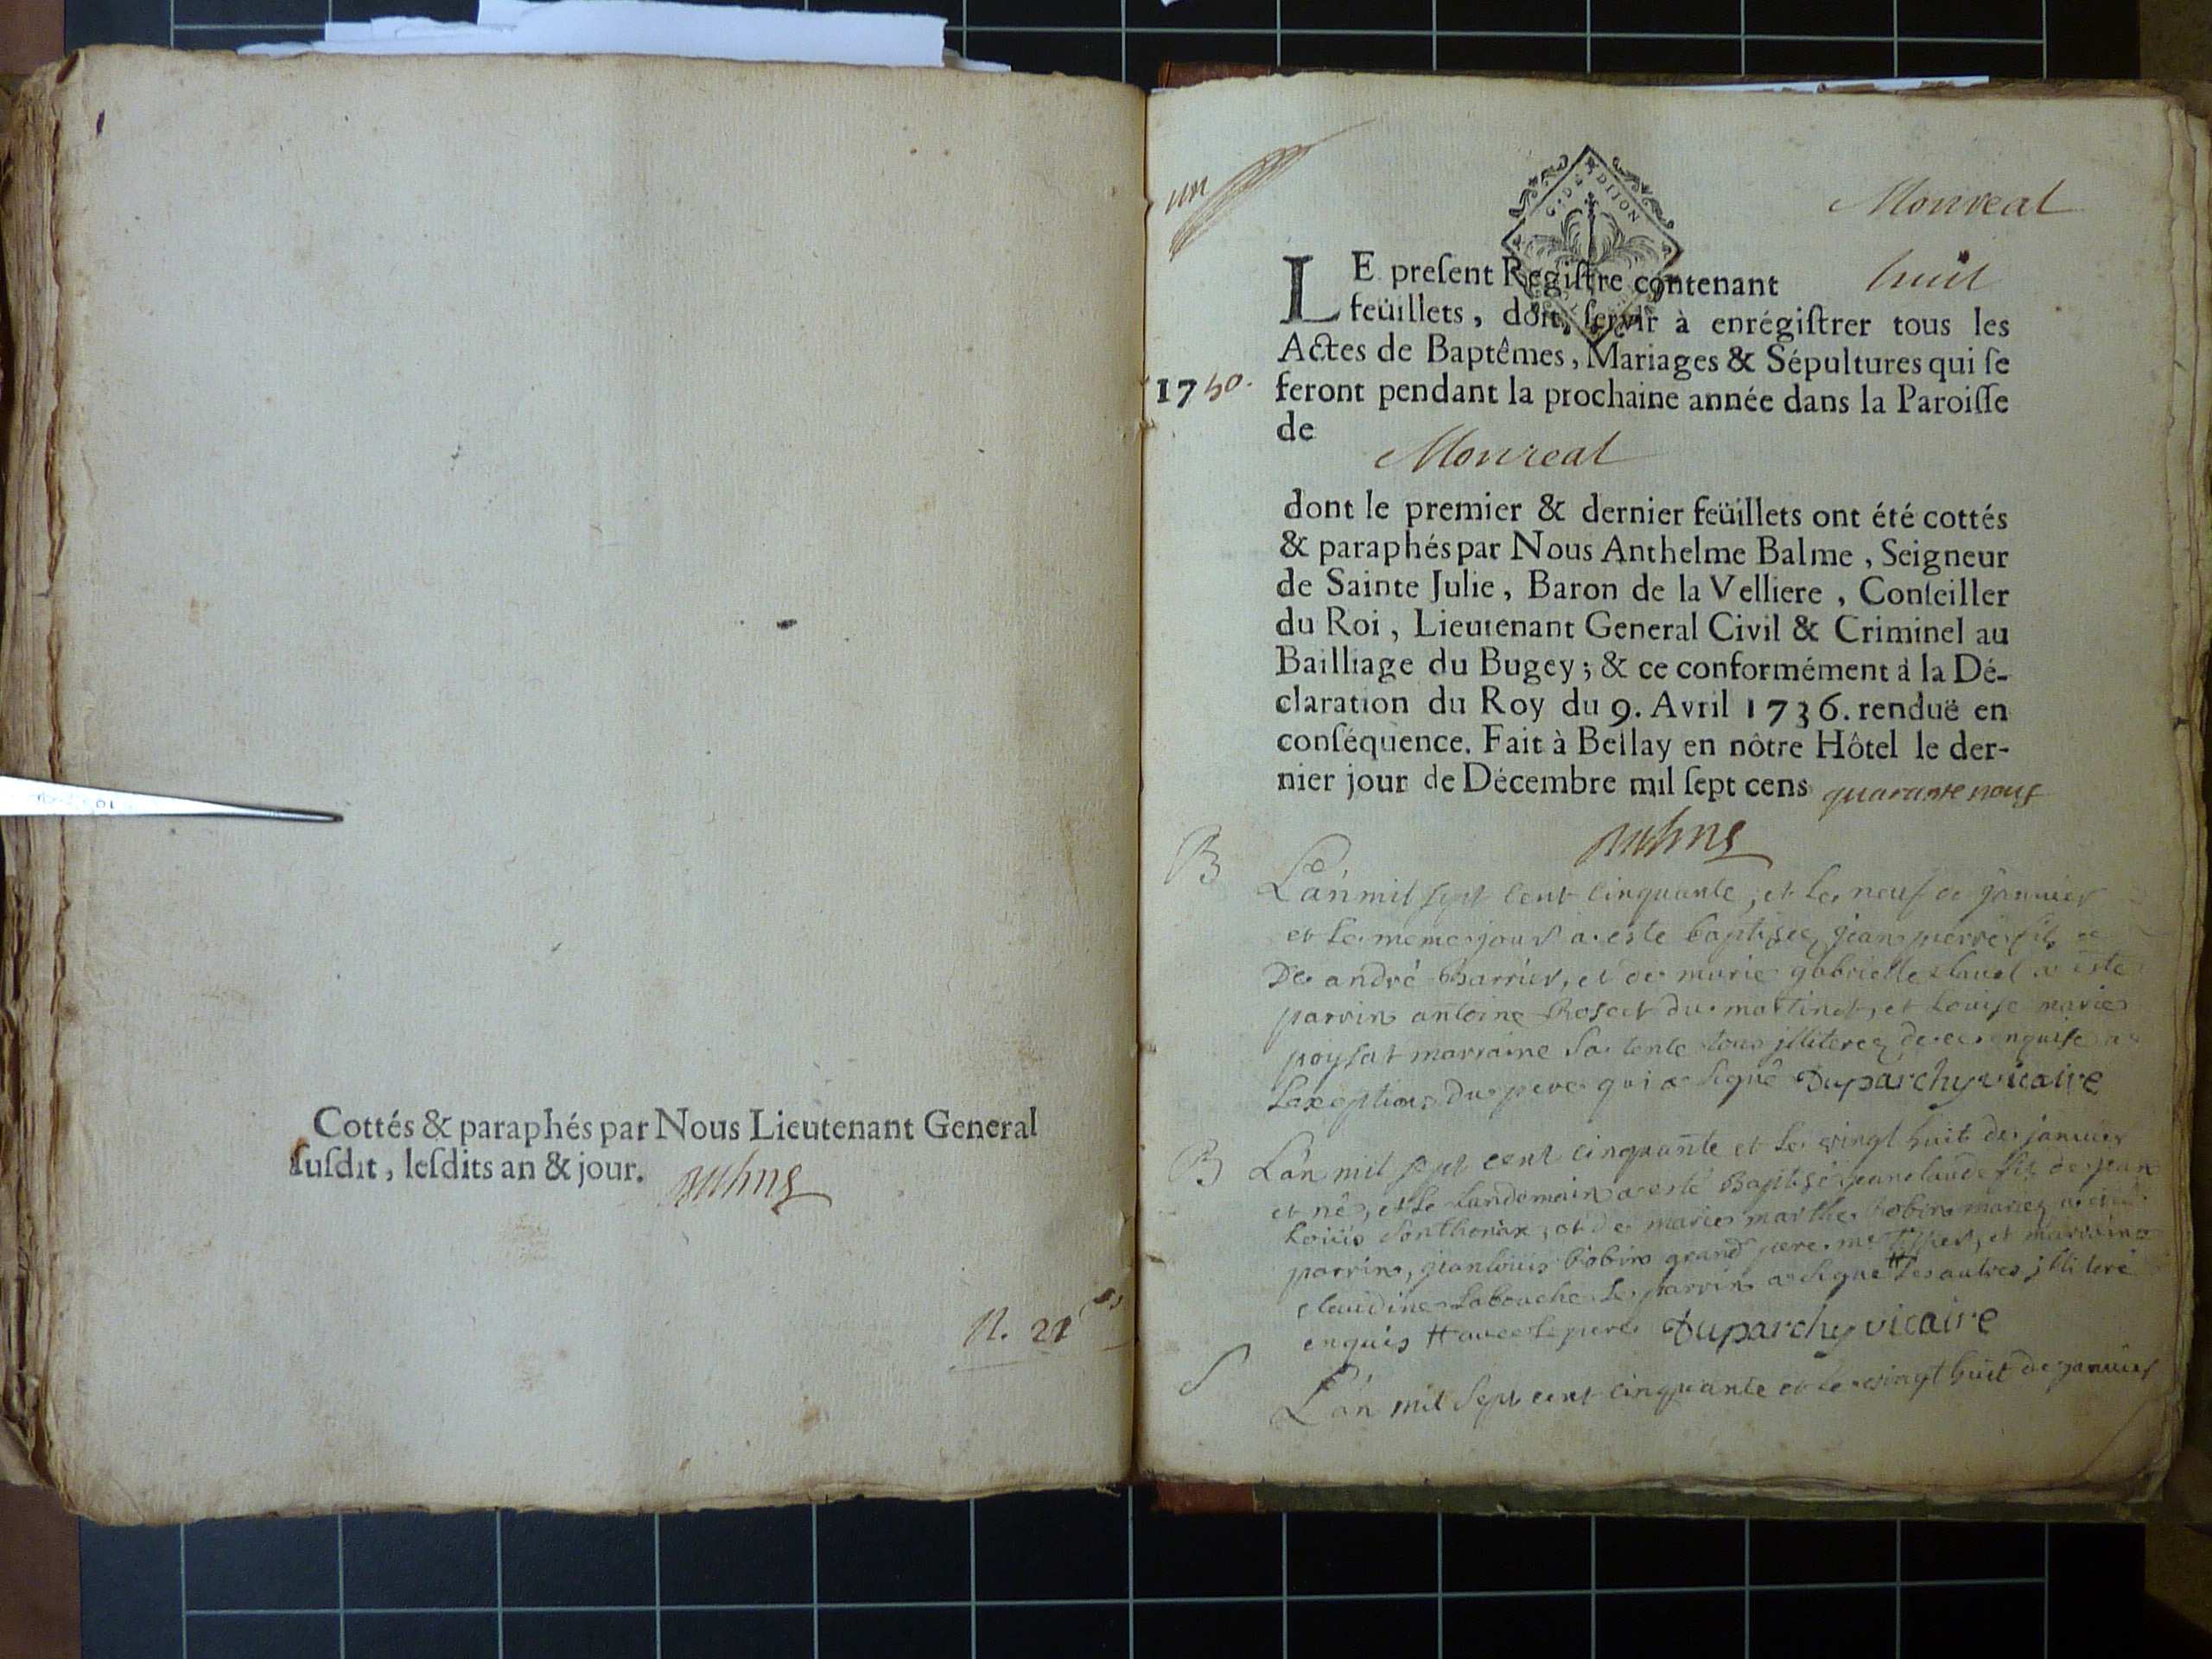 Cottés & paraphés par Nous Lieutenant General
suſdit, leſdits an & jour.
un
G. DE DIJON
Monreal
LE preſent Regiſtre contenant huit
feüillets, doit ſervir à enrégiſtrer tous les
Actes de Baptêmes, Mariages & Sépultures qui ſe
1750. feront pendant la prochaine année dans la Paroiſſe
de
Monreal
dont le premier & dernier feüillets ont été cottés
& paraphés par Nous Anthelme Balme, Seigneur
de Sainte Julie, Baron de la Velliere, Conſeiller
du Roi, Lieutenant General Civil & Criminel au
Bailliage du Bugey; & ce conformément à la Dé-
claration du Roy du 9. Avril 1736. renduë en
conſéquence. Fait à Bellay en nôtre Hôtel le der-
nier jour de Décembre mil ſept cens quarante neuf
B L'an mil sept cent cinquante, et le neuf de janvier
et le meme jour a este baptisee jean pierre fils
De andré Barrier, et de marie gabrielle a este
parrin antoine Rosset du martinet, et Louise marie
poysat marraine sa tente tous illiterez de ce enquise
Laxeption du pere qui a signé Duparchy vicaire
B L'an mil sept cent cinquante et le vingt huit de janvier
et né, et le landemain a esté Baptisé jean claude fils de jean
Loüis Sonthonax, et de marie marthe bobin mariez
parrin, jean loüis bobin grand pere et marraine
claudine Labouche le parrin a signé # les autres illiteré
enquis # avec le pere Duparchy vicaire
S L'an mil sept cent cinquante et le vingt huit de janvier